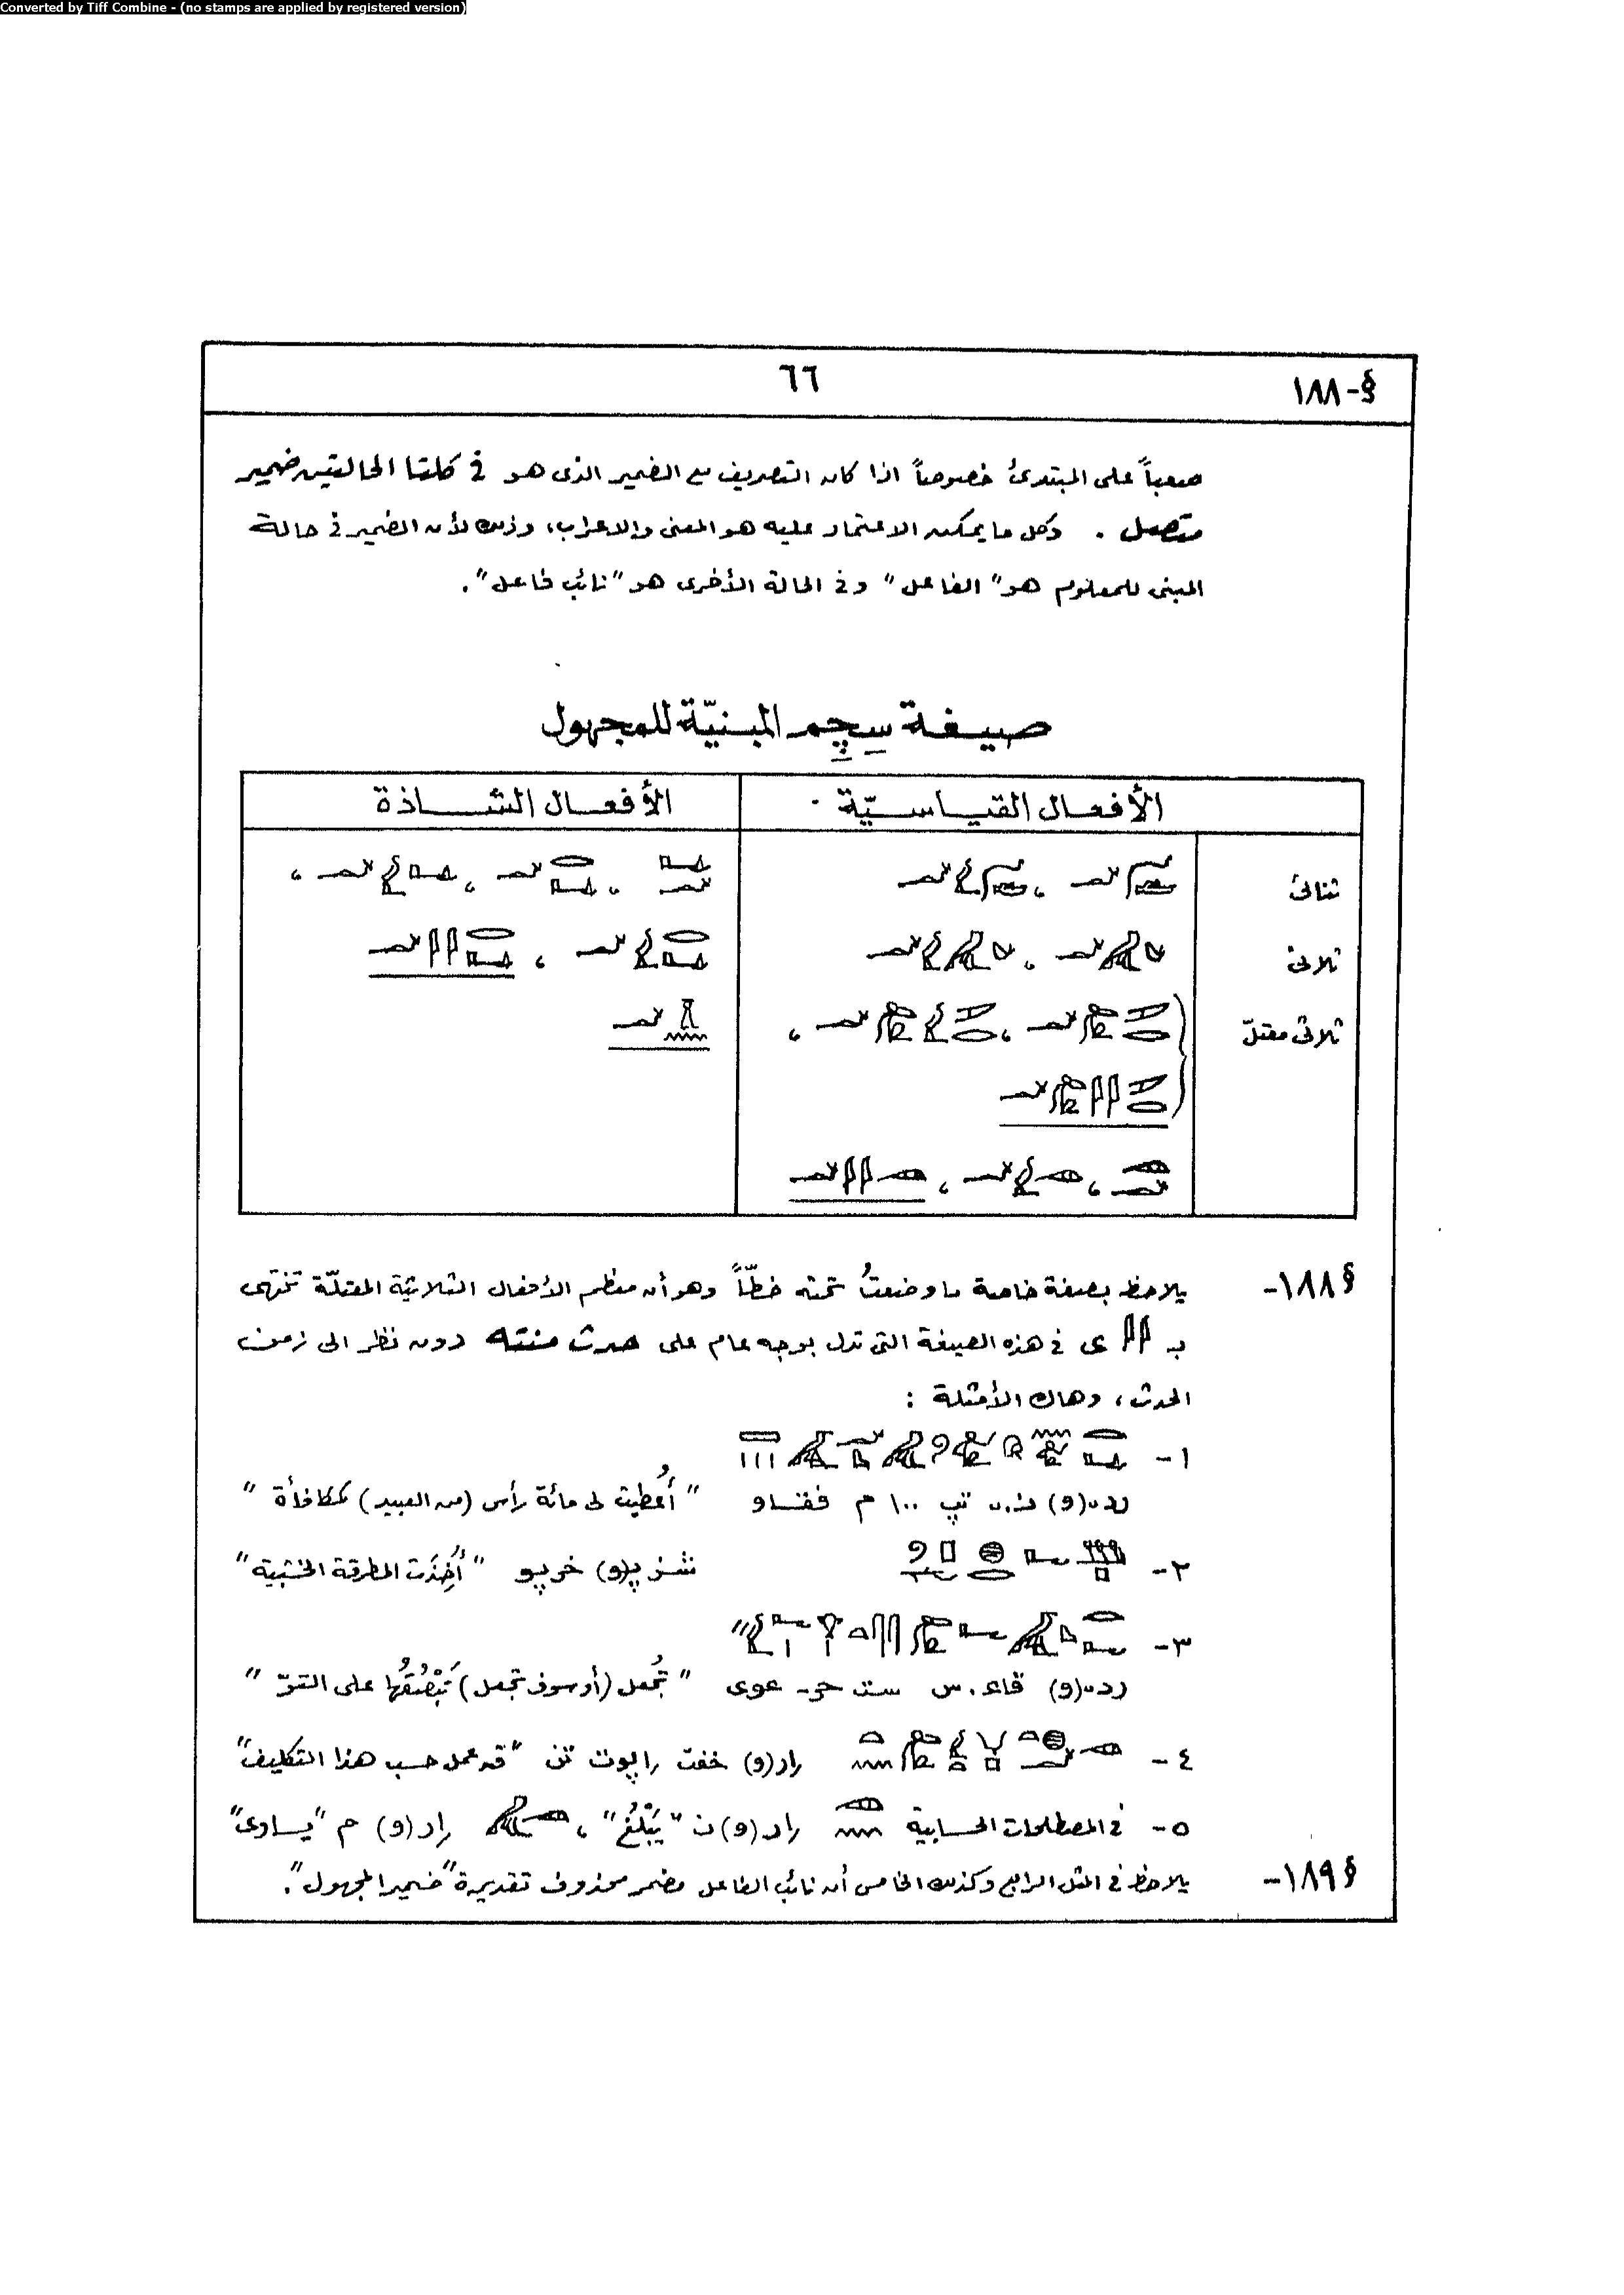 Converted by Tiff Combine - (no stamps are applied by registered version)
§-١٨٨
٦٦
صعباً على المبتدئ خصوصاً اذا كان التصريف مع الضمير الذى هو فى كلتا الحالتين ضمير
متصل . وكل ما يمكن الاعتماد عليه هو المعنى والاعراب، وذلك لأن الضمير فى حالة
المبنى للمعلوم هو "الفاعل" وفى الحالة الأخرى هو "نائب فاعل".
صيغة سِچِم المبنيّة للمجهول
الأفعال القياسيّة
الأفعال الشاذة
ثنائى
ثلاثى
ثلاثى معتلّ
§١٨٨- يلاحظ بصفة خاصة ما وضعتُ تحته خطّاً وهو أن معظم الأفعال الثلاثية المعتلّة تنتهى
بـ ى فى هذه الصيغة التى تدل بوجه عام على حدث منته دون نظر الى زمن
الحدث، وهاك الأمثلة :
١-
تپ ١٠٠ م فقاو "أُعطيت لى مائة رأس (من العبيد) كمكافأة"
٢- شز پ(و) خرپو "أُخِذَت المطرقة الخشبية"
٣-
"تُجعل (أو سوف تجعل) تَبْصُقُها على التوّ"
٤- خفت تن "قد عمل حسب هذا التكليف"
٥- فى المصطلحات الحسابية "يَبْلُغ"، م "يساوى"
§١٨٩- يلاحظ فى المثل الرابع وكذلك الخامس أن نائب الفاعل مضمر محذوف تقديرة "ضمير المجهول".